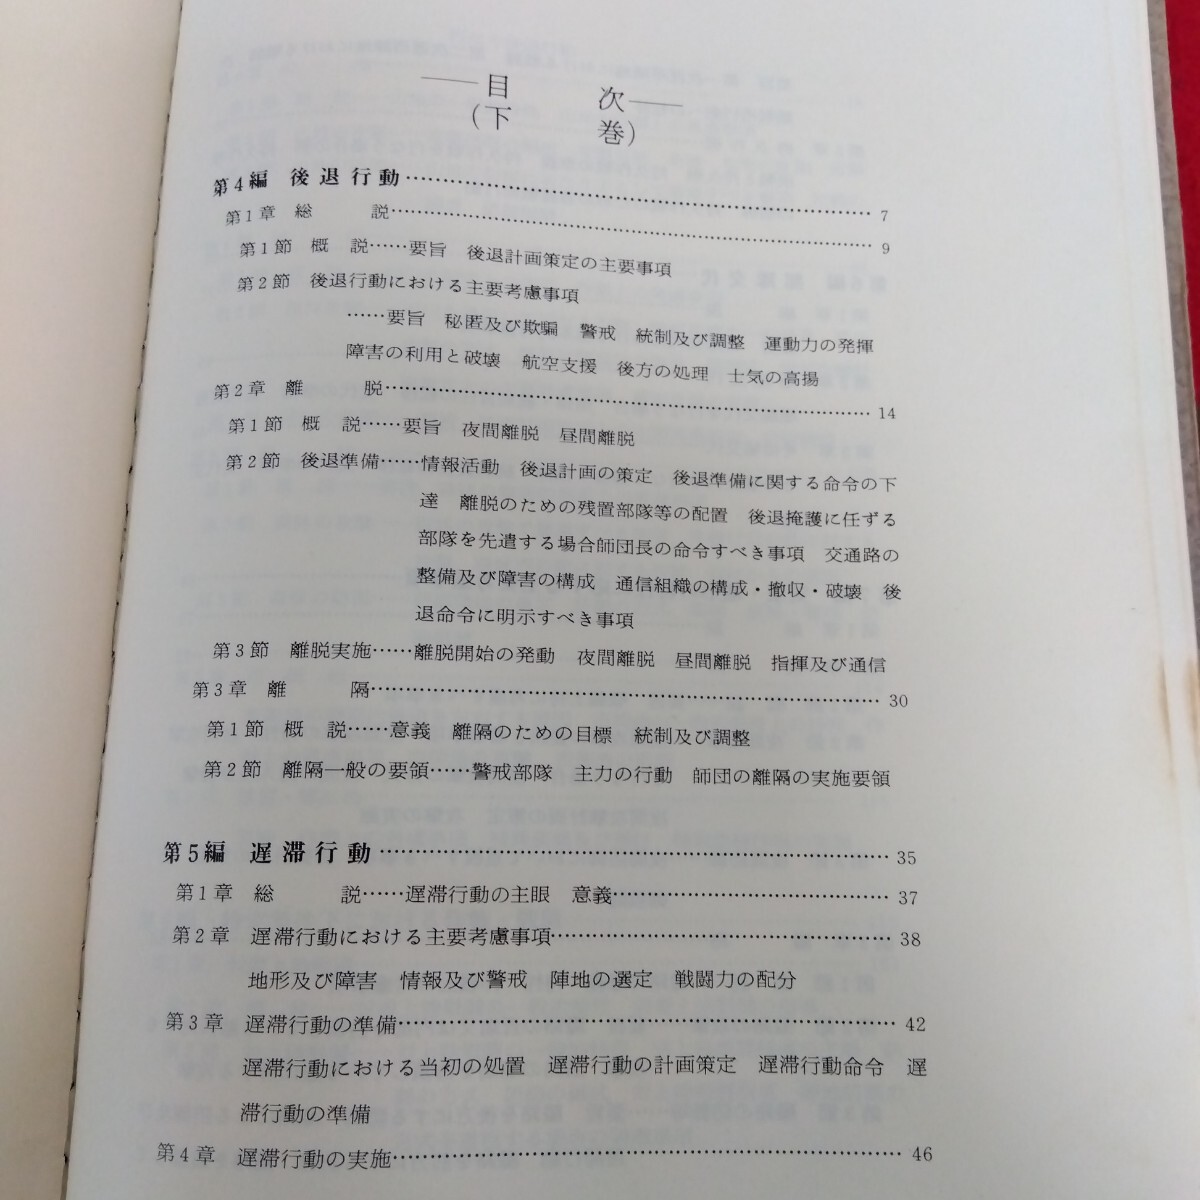 ――目　　次――
（下　　巻）
第4編　後退行動……………………………………………… 7
第1章　総　　説……………………………………………… 9
第1節　概　説……要旨　後退計画策定の主要事項
第2節　後退行動における主要考慮事項
……要旨　秘匿及び欺騙　警戒　統制及び調整　運動力の発揮
障害の利用と破壊　航空支援　後方の処理　士気の高揚
第2章　離　　脱……………………………………………… 14
第1節　概　説……要旨　夜間離脱　昼間離脱
第2節　後退準備……情報活動　後退計画の策定　後退準備に関する命令の下
達　離脱のための残置部隊等の配置　後退掩護に任ずる
部隊を先遣する場合師団長の命令すべき事項　交通路の
整備及び障害の構成　通信組織の構成・撤収・破壊　後
退命令に明示すべき事項
第3節　離脱実施……離脱開始の発動　夜間離脱　昼間離脱　指揮及び通信
第3章　離　　隔……………………………………………… 30
第1節　概　説……意義　離隔のための目標　統制及び調整
第2節　離隔一般の要領……警戒部隊　主力の行動　師団の離隔の実施要領
第5編　遅滞行動……………………………………………… 35
第1章　総　　説……遅滞行動の主眼　意義………………………… 37
第2章　遅滞行動における主要考慮事項……………………………… 38
地形及び障害　情報及び警戒　陣地の選定　戦闘力の配分
第3章　遅滞行動の準備……………………………………………… 42
遅滞行動における当初の処置　遅滞行動の計画策定　遅滞行動命令　遅
滞行動の準備
第4章　遅滞行動の実施……………………………………………… 46